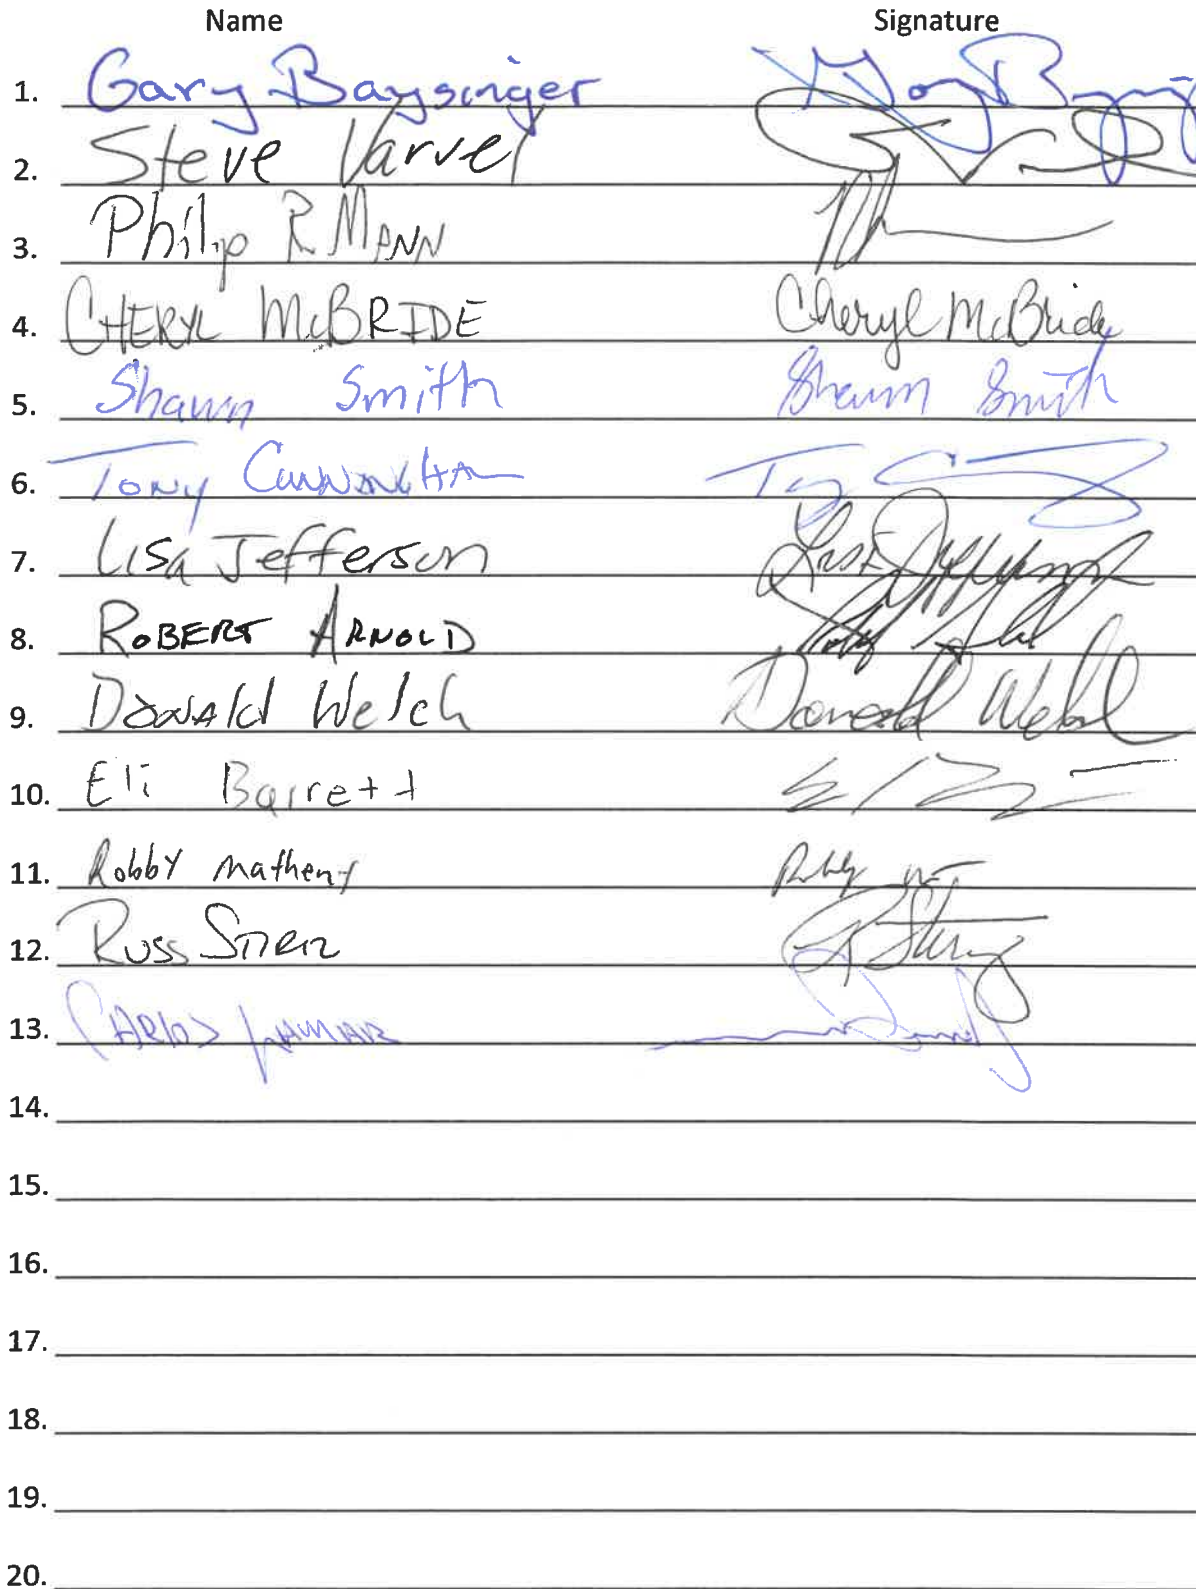 Name Signature
1. Gary Baysinger
2. Steve Varvel
3. Philip R MANN
4. CHERYL McBRIDE Cheryl McBride
5. Shawn Smith Shawn Smith
6. TONY
7. Lisa Jefferson Lisa Jefferson
8. ROBERT ARNOLD
9. DONALd Welch Donald Welch
10. Eli Barrett
11. RobbY Matheny
12. RUSS
13. CARlOS
14.
15.
16.
17.
18.
19.
20.